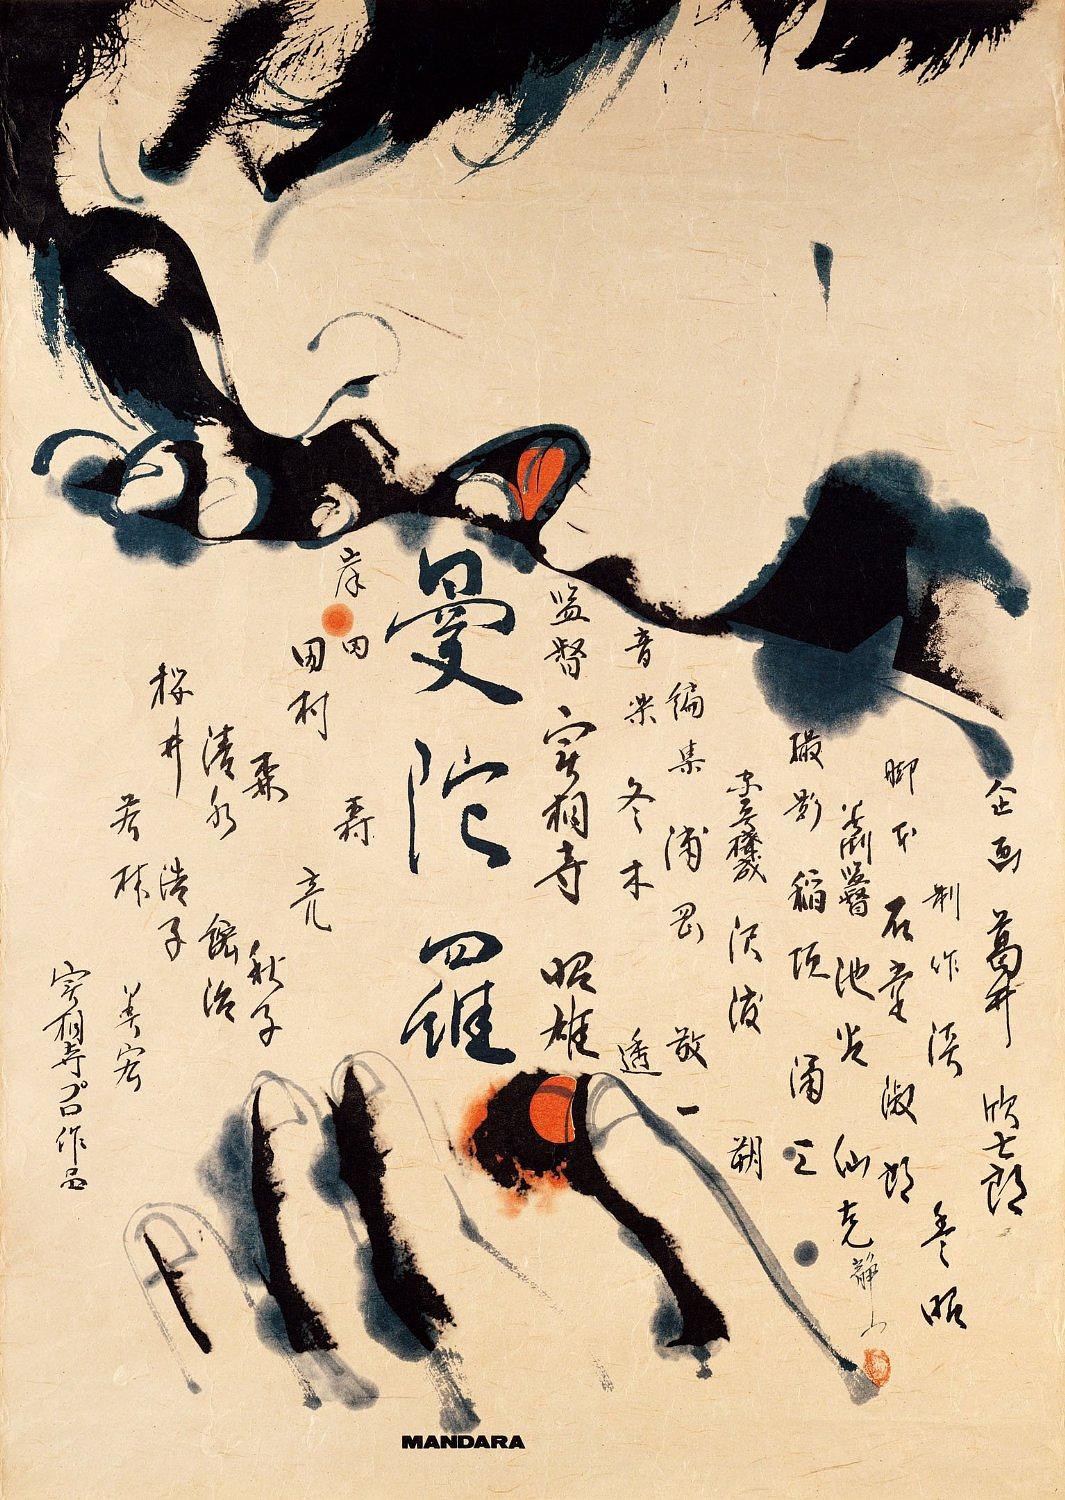 企画 葛井 欣士郎
制作 淡 豊昭
脚本 石堂 淑郎
美術監督 池谷 仙克
静山
撮影 稲垣 涌三
沢渡 朔
編集 浦岡 敬一
音楽 冬木 透
監督 実相寺 昭雄
曼陀羅
岸田 森
田村 亮
森 秋子
清水 紘治
桜井 浩子
若林 美宏
実相寺プロ作品
MANDARA